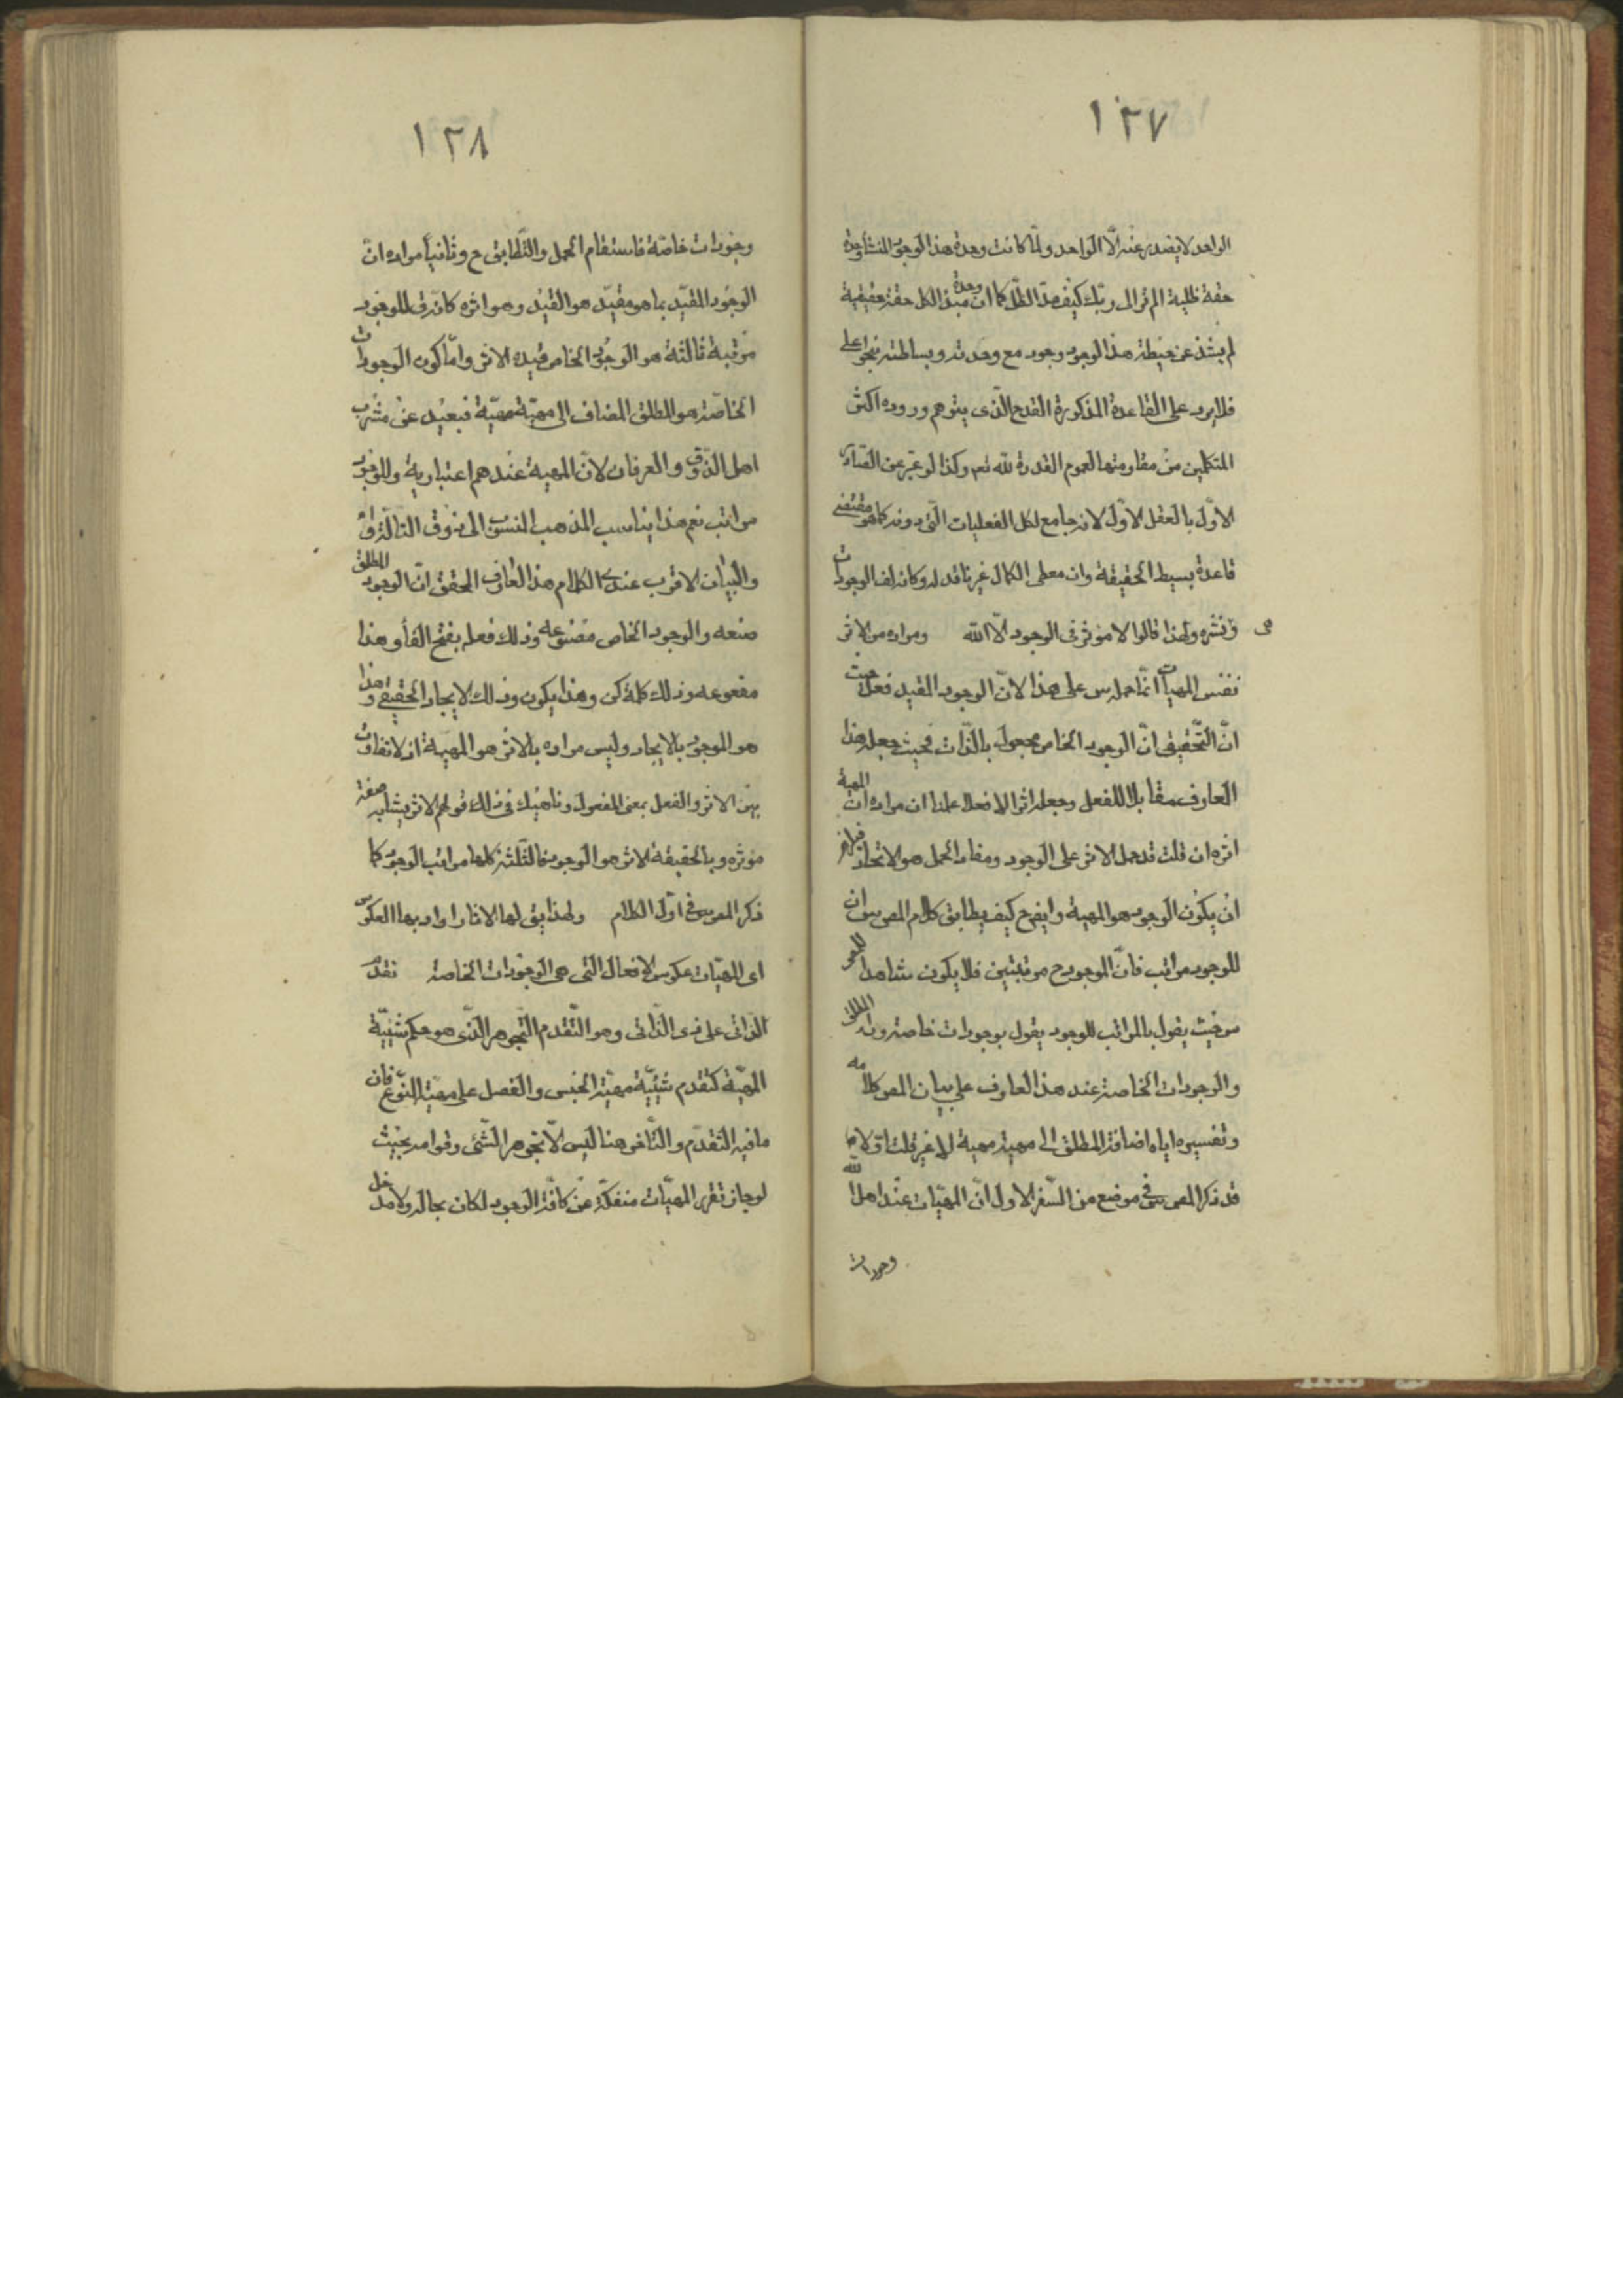 ١٢٧
الواحد لا يصدر عنه الّا الواحد ولمّا كانت وحدة هذا الوجود المنشأ وحدة
حقة ظلية الم تر الى ربّك كيف مدّ الظّل كما انّ وحدة مبدء الكل حقة حقيقية
لم يشذ عن حيطة هذا الوجود وجود مع وحدته وبساطته بنحو اعلى
فلا يرد على القاعدة المذكورة القدح الّذى يتوهم وروده اكثر
المتكلمين من مقاومتها لعموم القدرة للّه تعم وكذا لو عبّر عن الصّادر
الاوّل بالعقل الاوّل لانه جامع لكل الفعليات الّتى دونه كما هو مقتضى
قاعدة بسيط الحقيقة وان معطى الكمال غير فاقد له وكانه لف الوجودات
هى ونشره ولهذا قالوا لا مؤثر فى الوجود الّا اللّه ومراده من الاثر
نفس المهيات انّما حمل س على هذا لانّ الوجود المقيد فعل حيث
انّ التّحقيق انّ الوجود الخاص مجعول بالذّات فحيث جعل هذا
العارف مقابلا للفعل وجعله اثرا لا فعلا علمنا ان مراده انّ المهية
اثره ان قلت قد حمل الاثر على الوجود ومفاد الحمل هو الاتحاد فيلزم
ان يكون الوجود هو المهية وايضح كيف يطابق كلام المص س ان
للوجود مراتب فانّ الوجود ح مرتبتين فلا يكون شاهدا للمص
س حيث يقول بالمراتب للوجود يقول بوجودات خاصة دون المطلق
والوجودات الخاصة عند هذا العارف على بيان المص كلامه
وتفسيره اياه اضافة المطلق الى مهية مهية لا غير قلت اوّلا ما
قد ذكر المص س فى موضع من السّفر الاول انّ المهيّات عند اهل اللّه
وجودات
١٢٨
وجودات خاصّة فاستقام الحمل والتّطابق ح وثانياً مراده انّ
الوجود المقيّد بما هو مقيّد هو القيد وهو اثره كانّه قال للوجود
مرتبة ثالثة هو الوجود الخاص قيده الاثر وامّا كون الوجودات
الخاصّة هو المطلق المضاف الى مهيّة مهيّة فبعيد عن مشرب
اهل الذّوق والعرفان لانّ المهية عندهم اعتبارية وللوجود
مراتب نعم هذا يناسب المذهب المنسوب الى ذوق التألّه واه
والبيان الاقرب عندى لكلام هذا العارف المحقق انّ الوجود المطلق
صنعه والوجود الخاص مصنوعه وذلك فعله بفتح الفاء وهذا
مفعوعه وذلك كلمة كن وهذا يكون وذلك الايجاد الحقيقى وهذا
هو الموجود بالايجاد وليس مراده بالاثر هو المهية اذ لا تفاوت
بين الاثر والفعل بمعنى المفعول وناهيك فى ذلك قولهم الاثر يشابه صفة
مؤثره وبالحقيقة الاثر هو الوجود فالثلثة كلها مراتب الوجود كما
ذكر المص س فى اوّل الكلام ولهذا يق لها الاثار اراد بها العكوس
اى المهيّات عكوس الافعال التى هى الوجودات الخاصة تقدّم
الذّاتى على ذى الذّاتى وهو التّقدم التّجوهر الّذى هو حكم شيئيّة
المهيّة كتقدم شيئيّة مهيّة الجنس والفصل على مهيّة النّوع فان
ما فيه التّقدّم والتّاخر هنا ليس الّا تجوهر الشّئى وقوامه بحيث
لو جاز تقرر المهيّات منفكّة عن كافّة الوجود لكان بحاله ولا مدخل